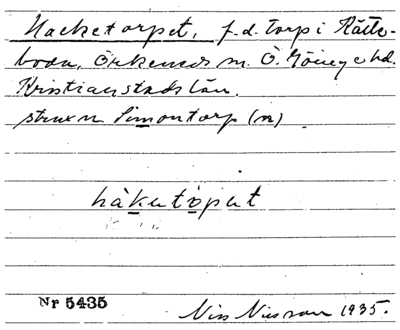 Hacketorpet, f.d. torp i Rätte-
boda, Örkeneds sn. Ö. Göinge hd.
Kristianstads län.
Simontorp (n)
hàkatòpat
Nr 5435
Nils Nilsson 1935.